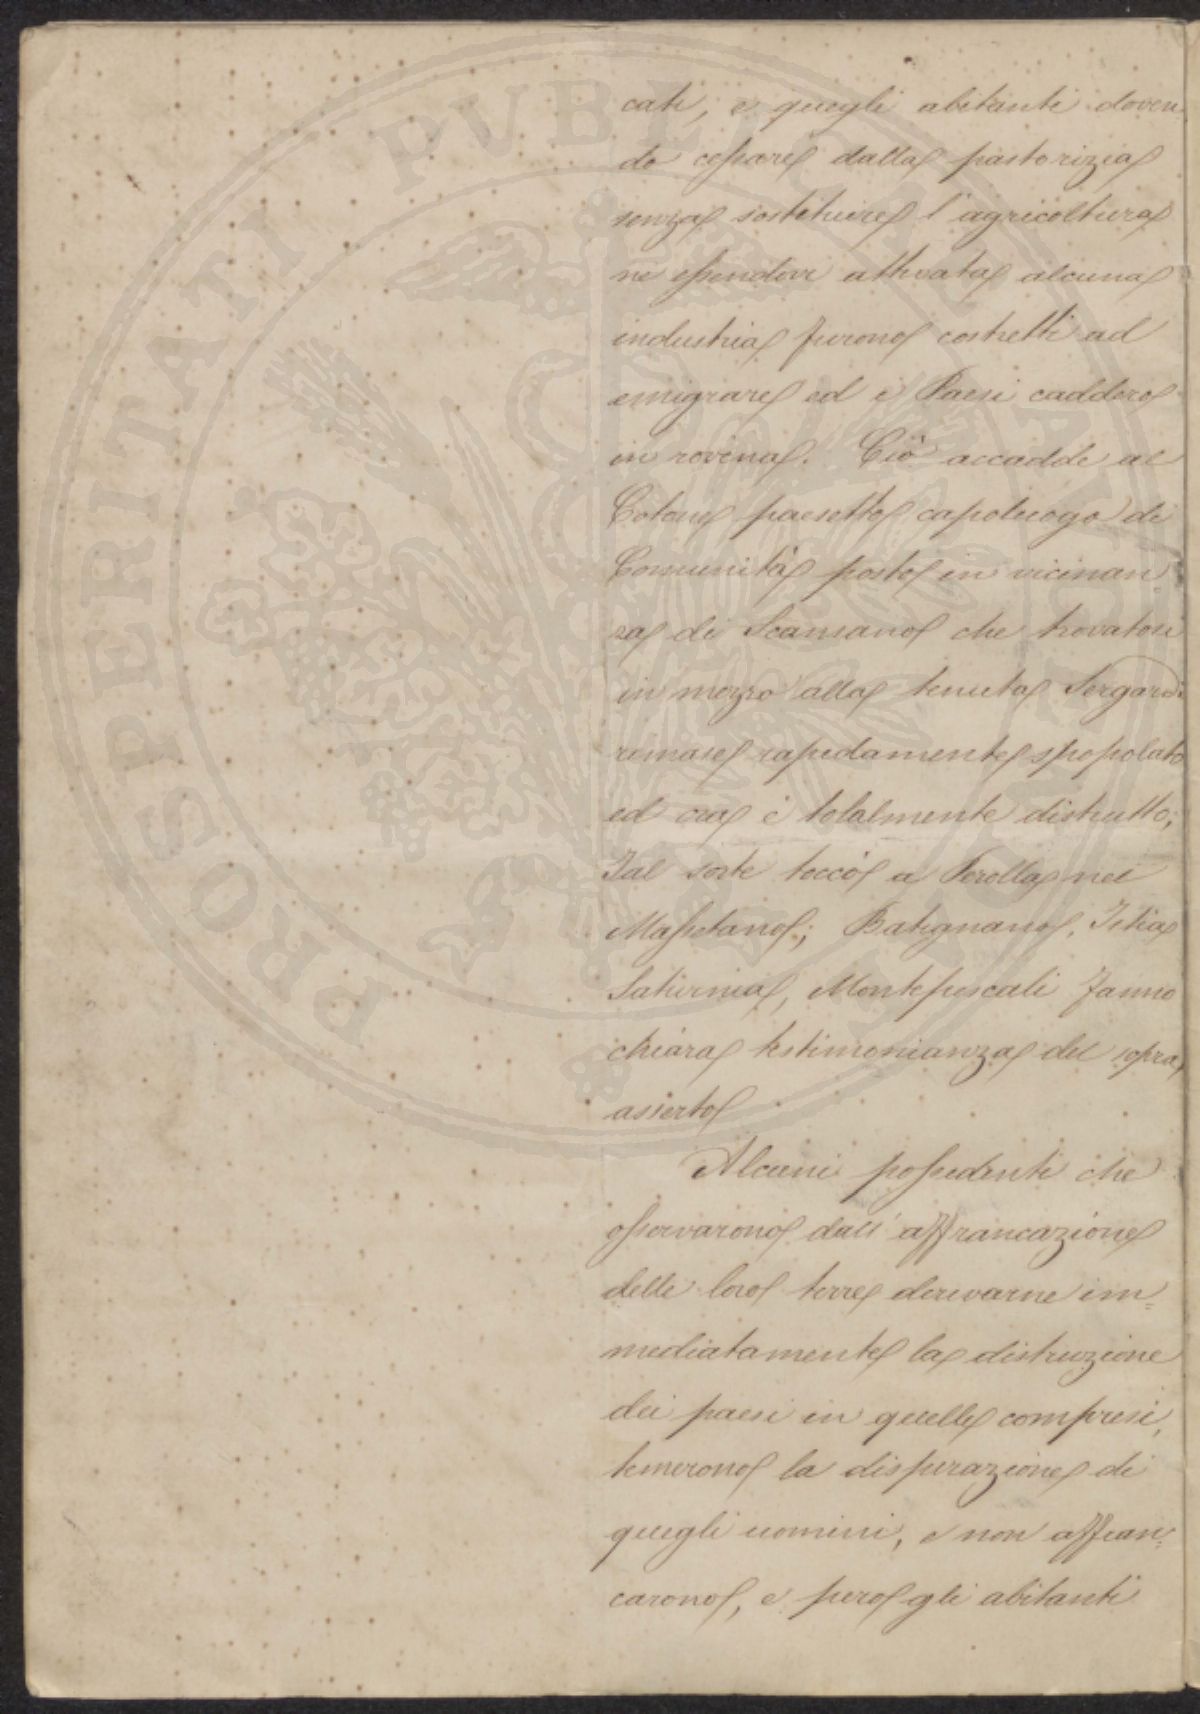 cati, e quegli abitanti doven
do cessare dalla pastorizia
senza sostituire l'agricoltura
ne essendovi attivata alcuna
industria furono costretti ad
emigrare ed i Paesi caddero
in rovina. Ciò accadde al
Cotone paesetto capoluogo di
Comunità posto in vicinan
za di Scansano che trovatosi
in mezzo alla tenuta Sergardi
rimase rapidamente spopolato
ed ora è totalmente distrutto;
Tal sorte toccò a Perolla nel
Massetano; Batignano, Istia
Saturnia, Montepescali fanno
chiara testimonianza del sopra,
asserto
Alcuni possidenti che
osservarono dall'affrancazione
delle loro terre derivarne im=
mediatamente la distruzione
dei paesi in quelle compresi,
temerono la disperazione di
quegli uomini, e non affran=
carono, e però gli abitanti
PROSPERITATI PVBLICAE